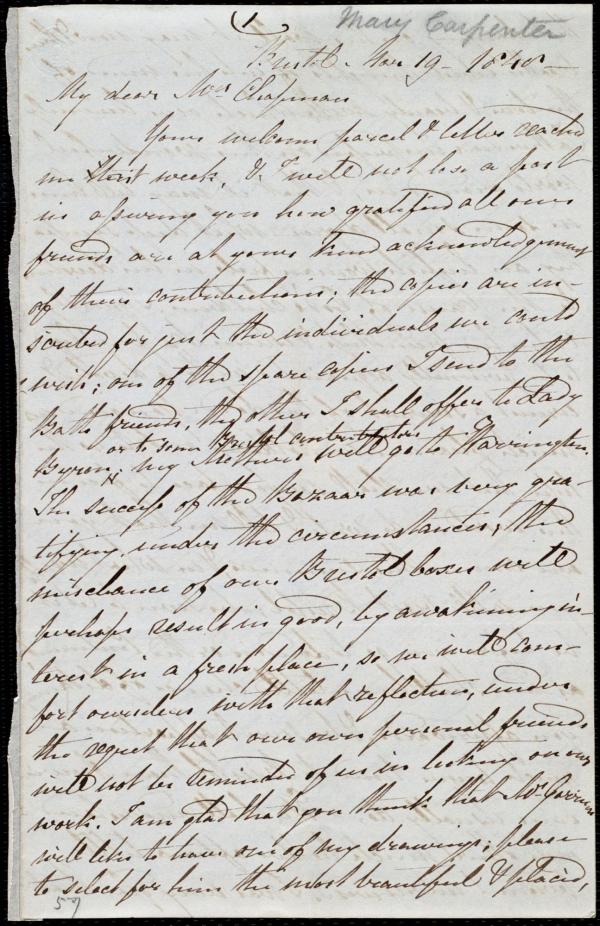 (1
Mary Carpenter
Bristol. Mar 19 - 1848 -
My dear Mrs Chapman
Your welcome parcel & letter reached
me last week, & I will not lose a post
in assuring you how gratified all our
friends are at your kind acknowledgement
of their contributions; the copies are in-
scribed for just the individuals we could
wish; one of the spare copies I send to the
Bath friends, the other I shall offer to Lady
or to some Bristol contributors
Byron; my Mother's will go to Warrington.
The success of the Bazaar was very gra-
tifying, under the circumstances; the
mischance of our Bristol boxes will
perhaps result in good, by awakening in-
terest in a fresh place, so we will com-
fort ourselves with that reflection, under
the regret that our own personal friends
will not be reminded of us in looking on our
work. I am glad that you think that Mr. Garrison
will like to have one of my drawings; please
to select for him the most beautiful & placid,
57